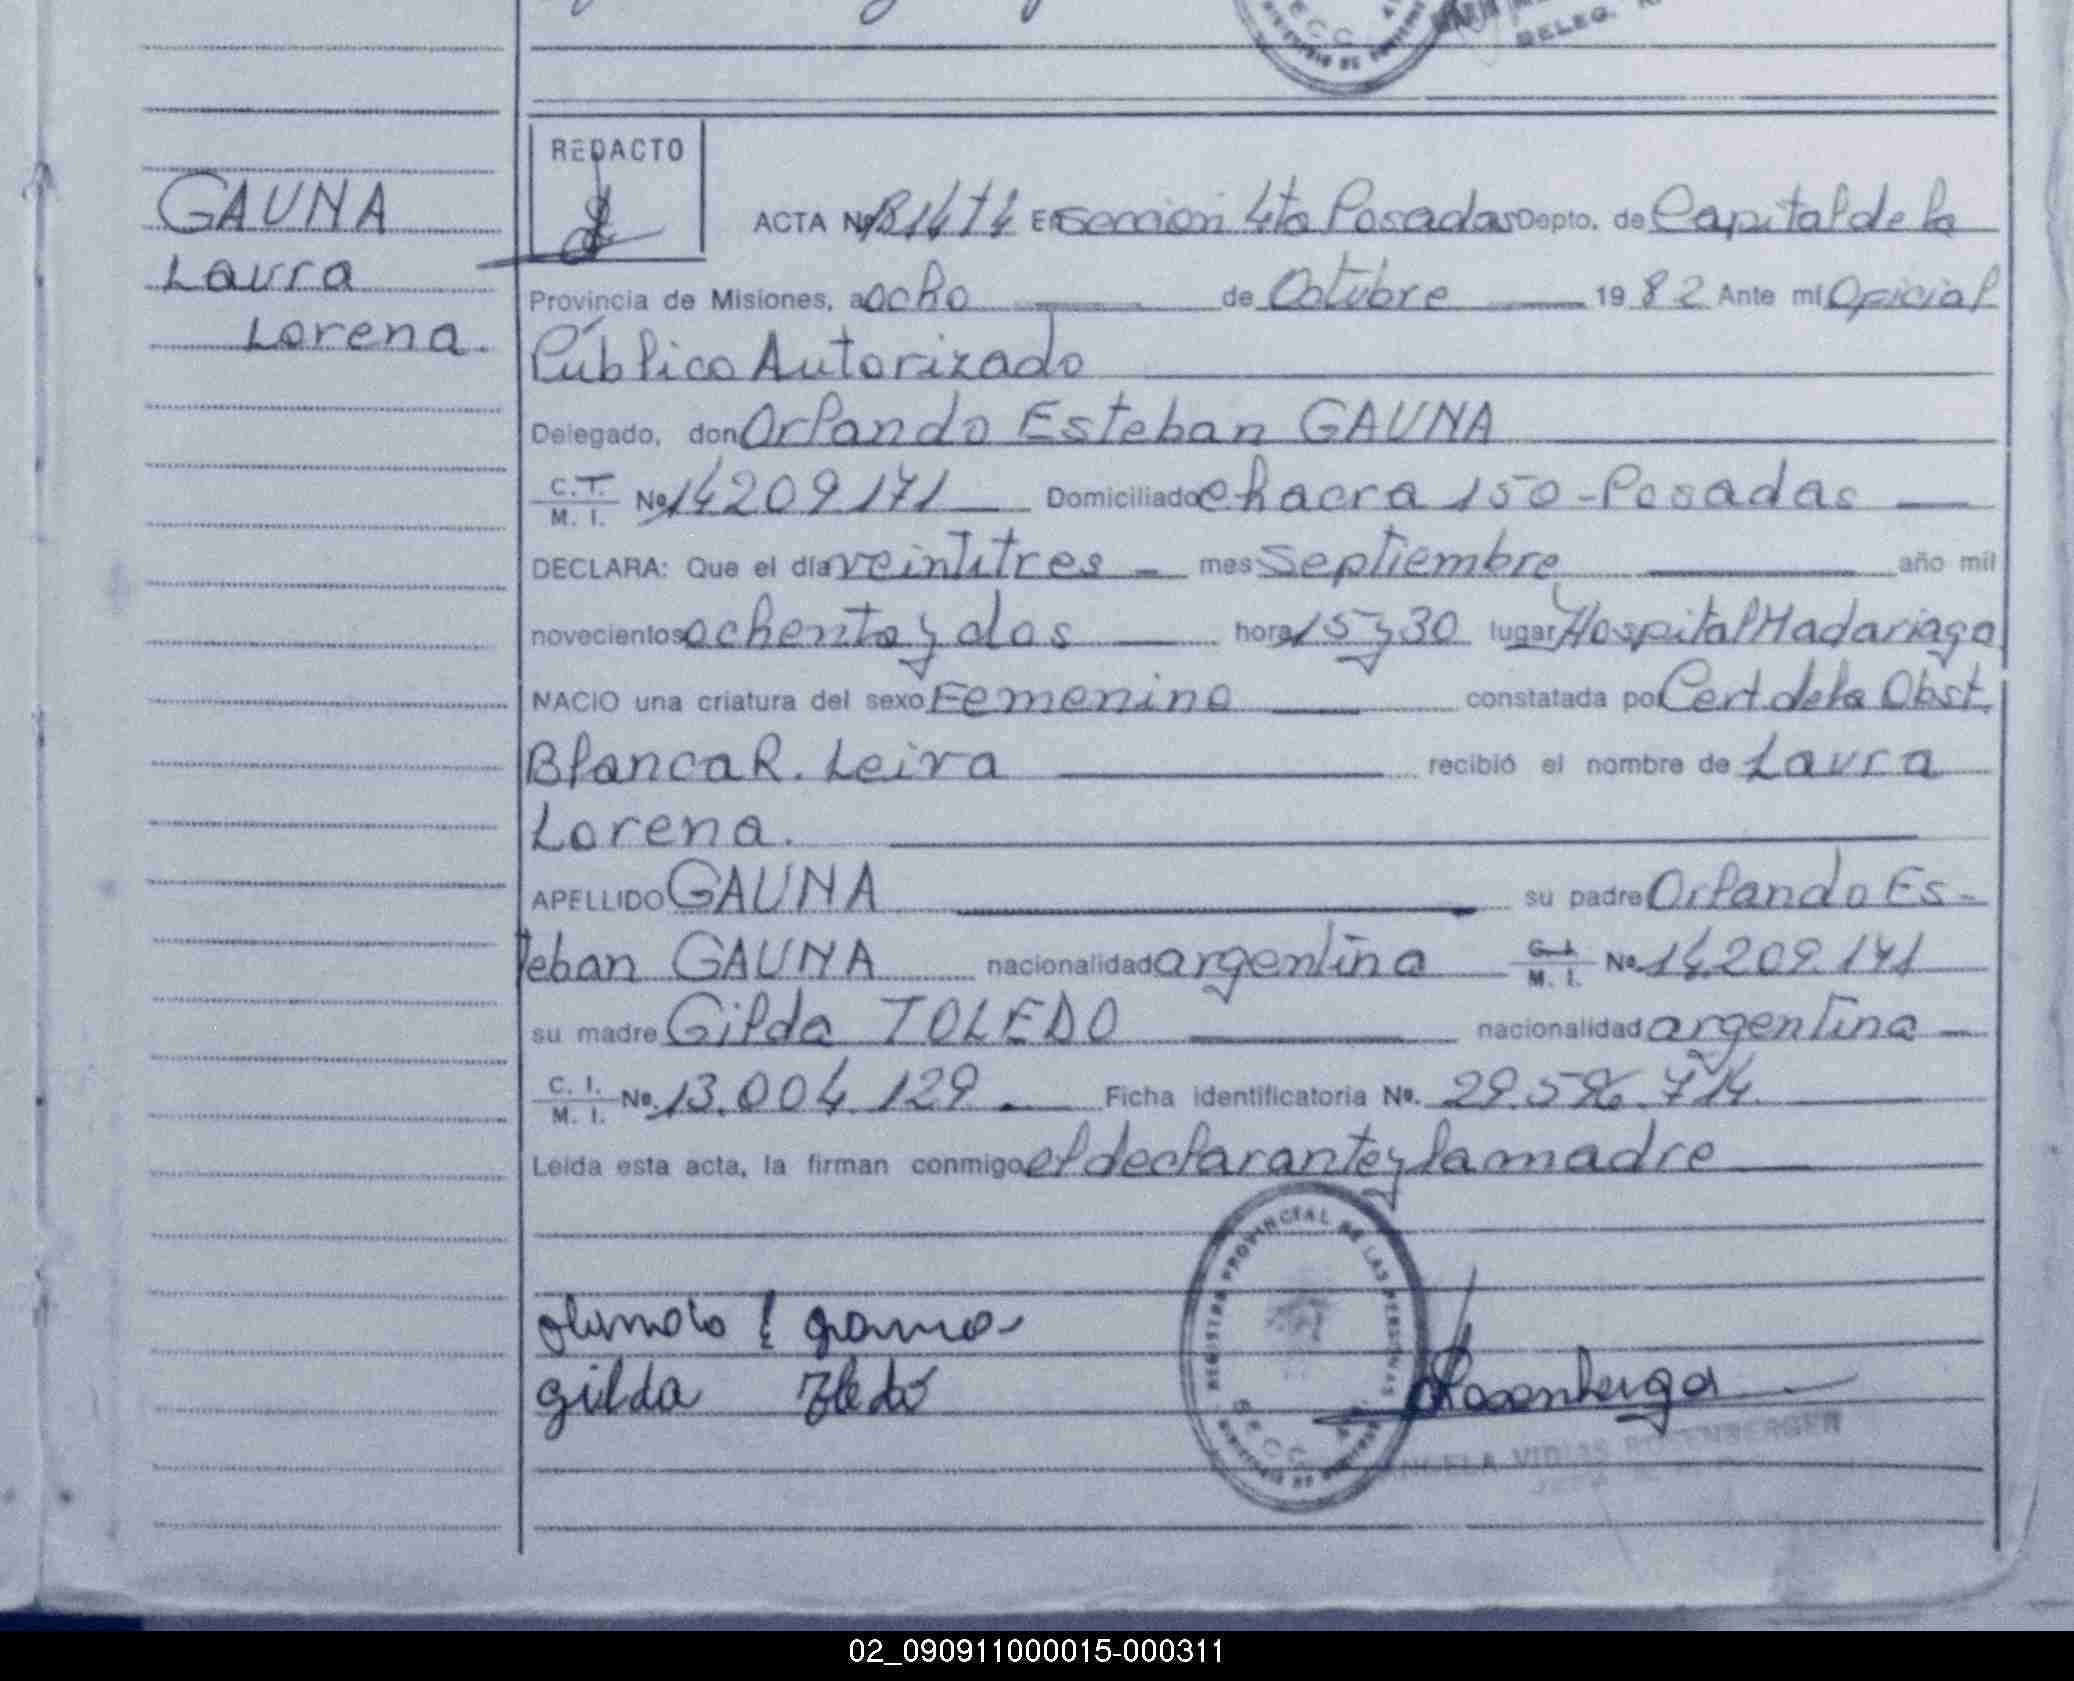 DELEG.
GAUNA
Laura
Lorena.
REDACTO
ACTA Nº B1474 En sección 4ta Posadas Depto. de Capital de la
Provincia de Misiones, a ocho de Octubre 1982 Ante mí Oficial
Público Autorizado
Delegado, don Orlando Esteban GAUNA
C.T. M. I. Nº 14209171 Domiciliado Chacra 150 - Posadas
DECLARA: Que el día veintitres - mes Septiembre año mil
novecientos ochenta y dos hora 15 y 30 lugar Hospital Madariaga
NACIO una criatura del sexo Femenino constatada por Cert. de la Obst.
Blanca R. Leiva recibió el nombre de Laura
Lorena.
APELLIDO GAUNA su padre Orlando Es-
teban GAUNA nacionalidad argentina C. I. M. I. Nº 14.209.171
su madre Gilda TOLEDO nacionalidad argentina
C. I. M. I. Nº. 13.004.129 Ficha identificatoria Nº. 29.596.714
Leída esta acta, la firman conmigo el declarante y la madre
REGISTRO PROVINCIAL DE LAS PERSONAS
SECC. 4ª
Orlando E Gauna
Gilda Toledo
Rosenberger
ROSENBERGER
02_090911000015-000311